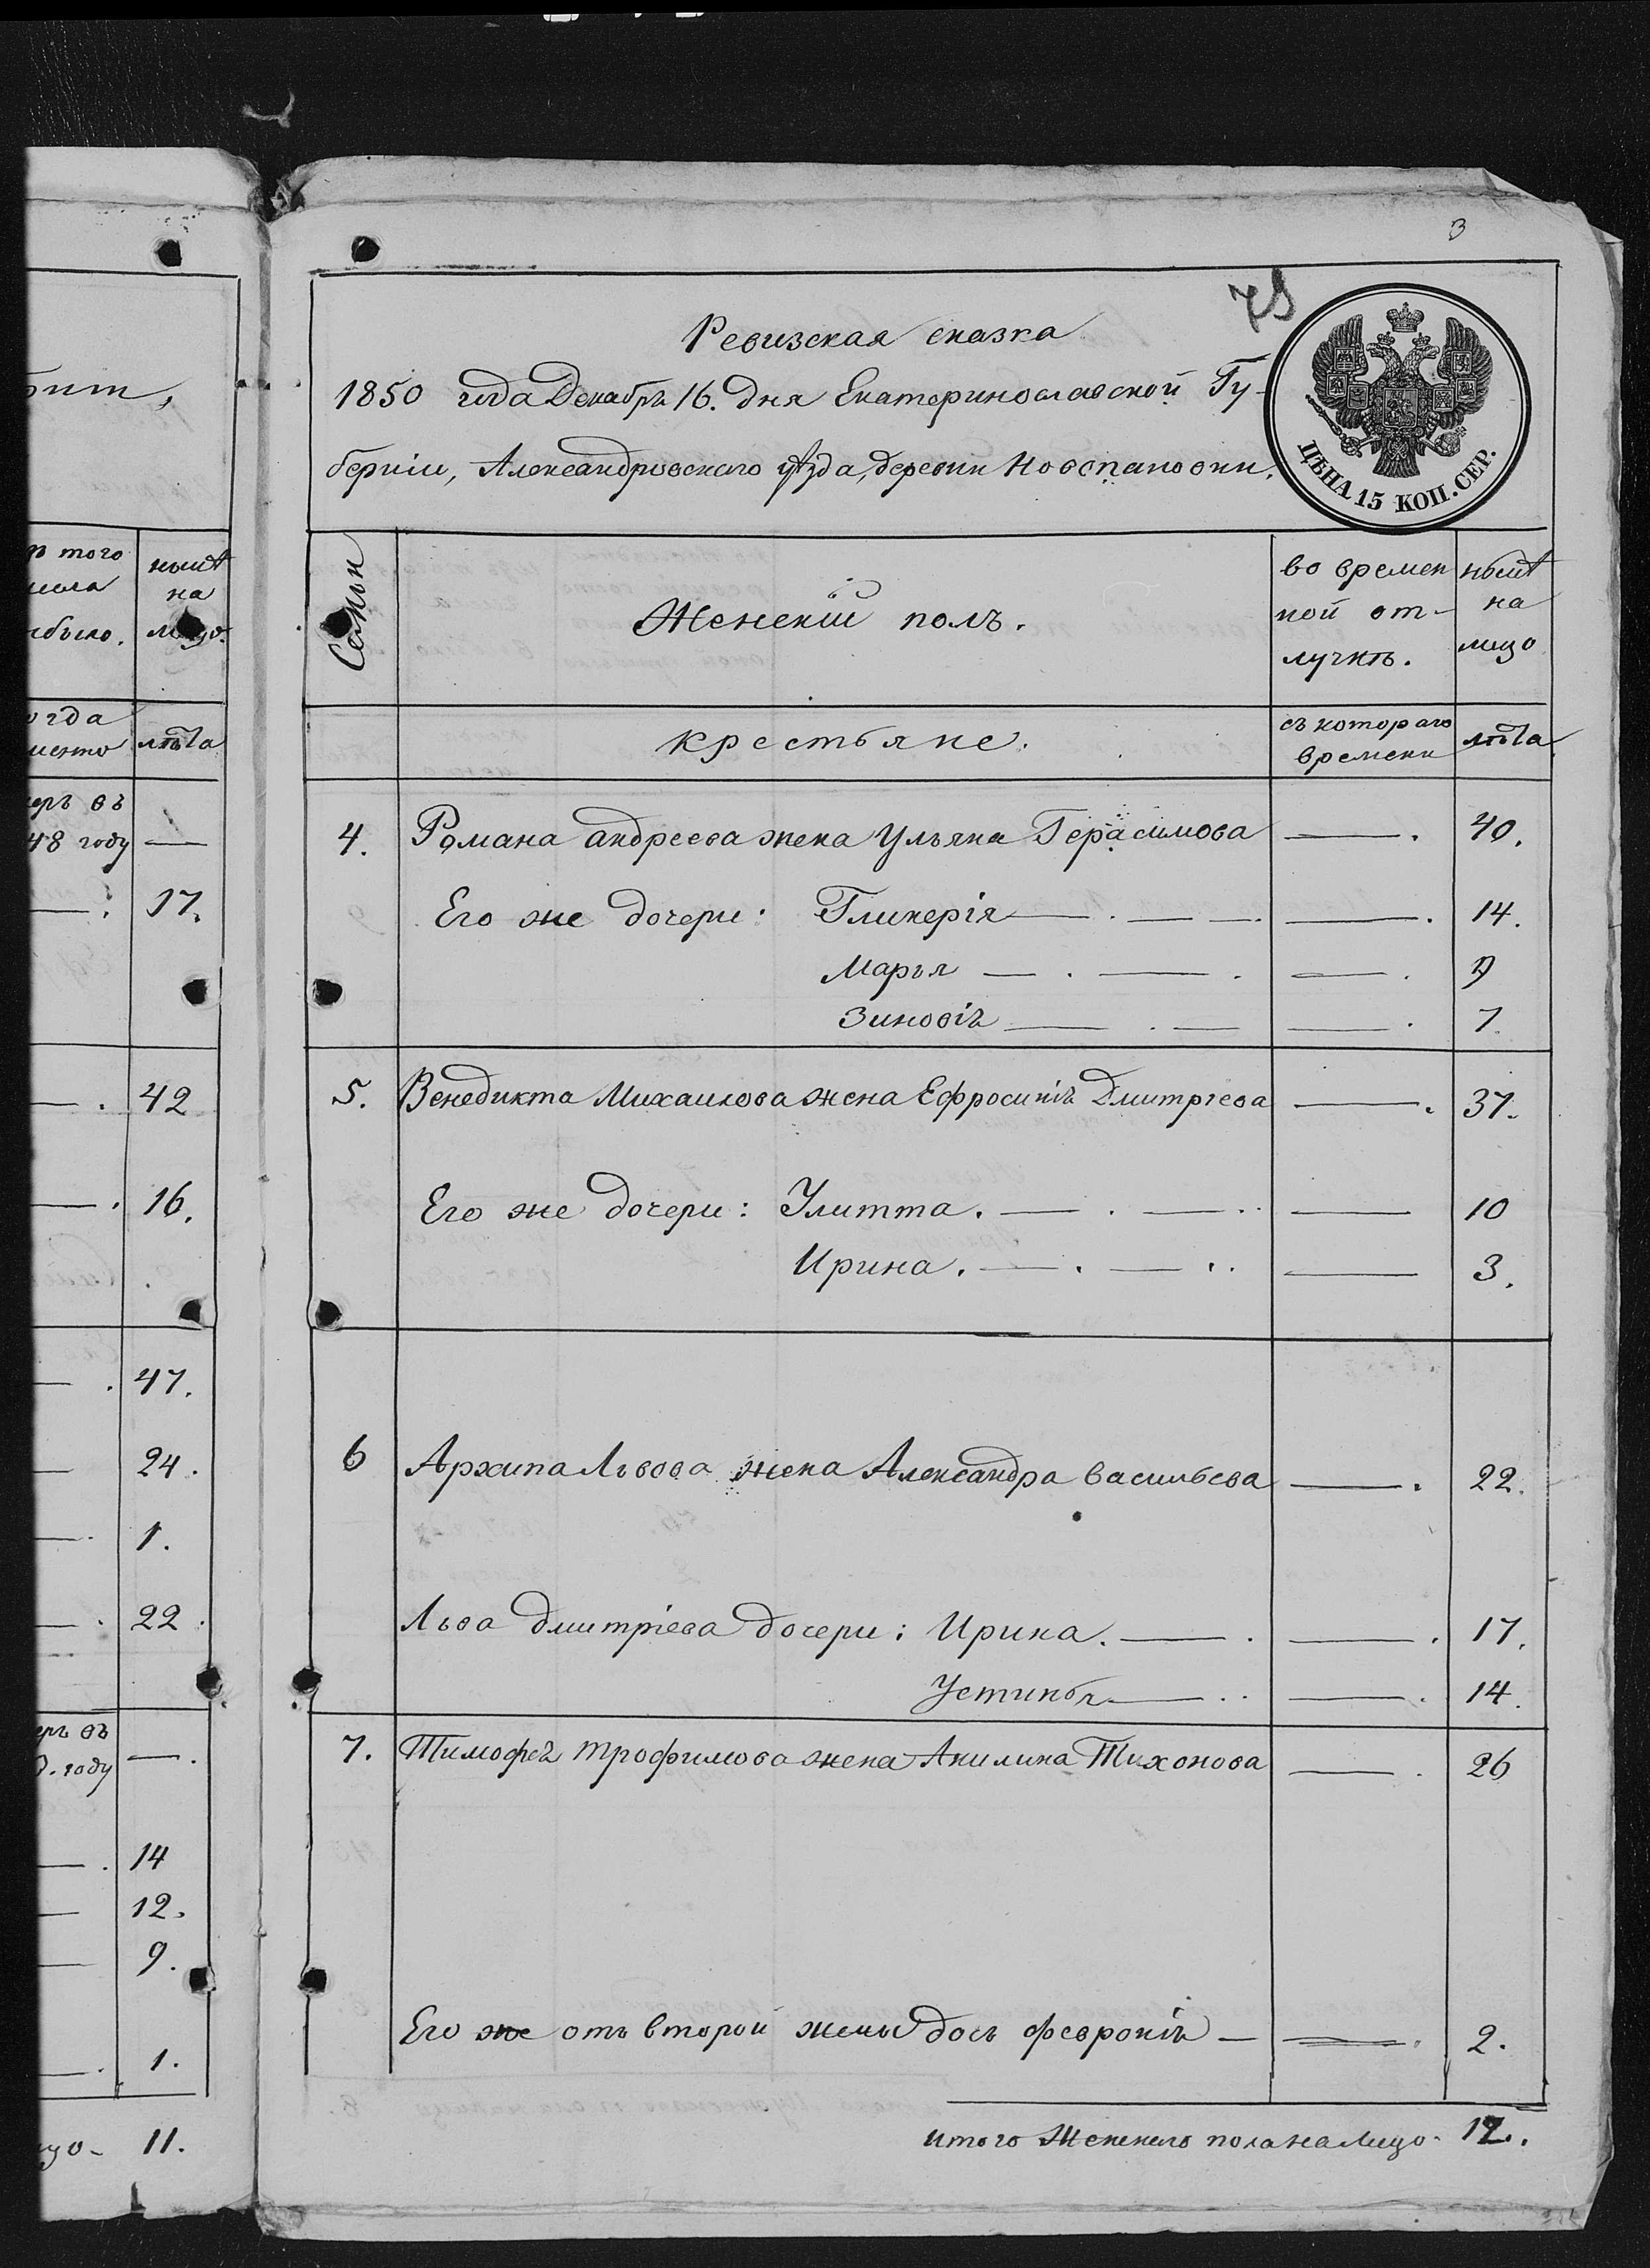 битъ,
ъ того
числа
ибыло.
нынѣ
на
лицо.
когда
именно
лѣта
меръ въ
48 году
17.
42
16.
47.
24.
1.
22
меръ въ
д. году
14
12.
9.
1.
лицо- 11.
3
78
Ревизская сказка
1850 года Декабря 16. дня Екатеринославской Гу-
берніи, Александровского уѣзда, деревни Новопановки.
ЦѢНА 15 КОП. СЕР.
Семьи
Женскій полъ.
во времен
ной от-
лучкѣ.
нынѣ
на
лицо
крестьяне.
съ котораго
времени
лѣта
4. Романа андреева жена Ульяна Герасимова 40.
Его же дочери: Гликерія 14.
Марья 9
Зиновія 7.
5. Венедикта Михаилова жена Ефросинія Дмитріева 37.
Его же дочери: Улитта. 10
Ирина. 3.
6 Архипа Львова жена Александра васильева 22.
Льва дмитріева дочери: Ирина. 17.
Устинья 14.
7. Тимофея трофимова жена Акилина Тихонова 26
Его же отъ второй жены дочь февронія 2.
итого Женскаго пола на лицо- 12.